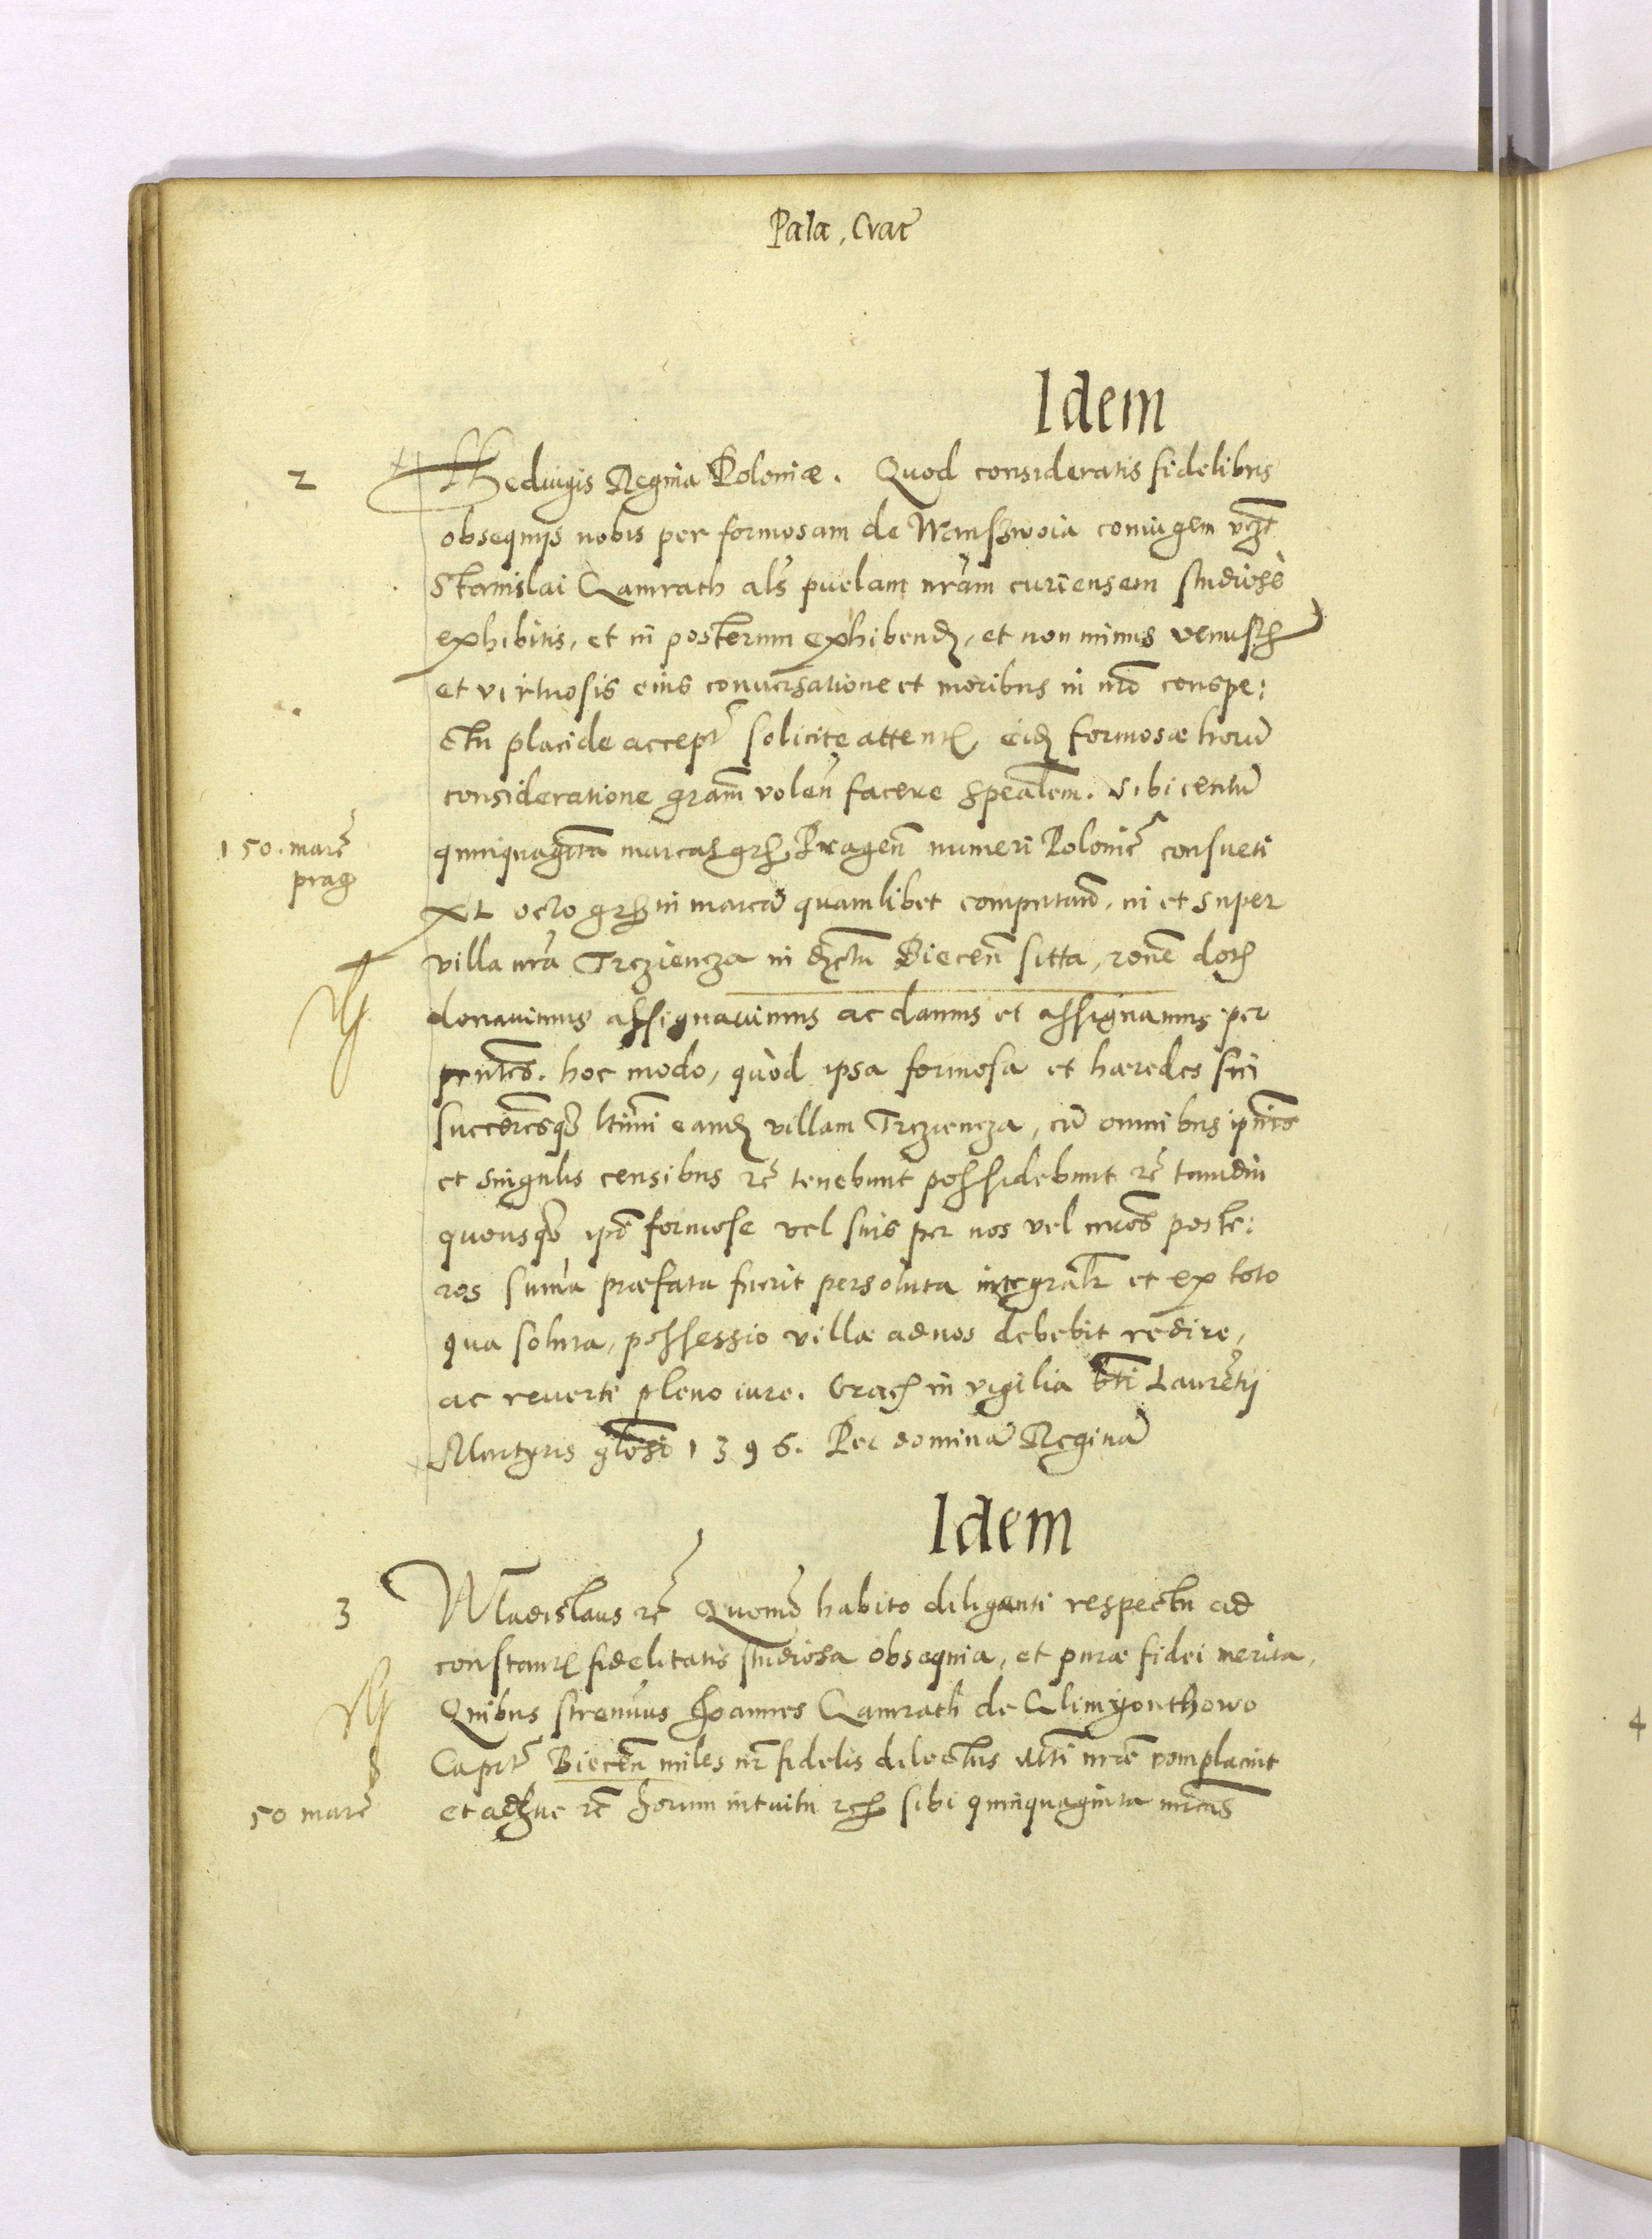 Pala, Crac
Idem
2
Hedvigis Regina Poloniæ. Quod consideratis fidelibus
obsequijs nobis per formosam de coniugem vczt
Stanislai Qamrath als puelam nram curiensem studiose
exhibitis, et in posterum exhibend, et non minus venust
et virtuosis eius conversatione et moribus in nro conspe:
ctu placide accept solicite attent, eid formosæ horũ
consideratione gram volen facere spealem. sibi centũ
150. marc
prag
quinquagĩta marcas gr Pragen numeri Polonic consueti
XL octo gr in marcã quamlibet computand, in et super
villa nra Trzciencza in distctu Biecen sitta, rone dot
donavimus assignavimus ac damus et assignamus per
pntes. hoc modo, quòd ipsa formosa et hæredes sui
succoresq ltimi eand villam Trzciencza, cũ omnibus
et singulis censibus rc tenebunt possidebunt rc tamdiu
quousq ipi formose vel suis per nos vel nros poste:
ros suma præfata fuerit persoluta integralr et ex toto
qua soluta, possessio villæ ad nos debebit redire,
ac reverti pleno iure. Crac in vigilia bti Laurẽtij
Martyris glosi 1396. Per dominã Reginã
Idem
3
Wladislaus rc Quomo habito diligenti respectu ad
constant fidelitatis studiosa obsequia, et puræ fidei merita,
Quibus strenuus Joannes Qamrath de Climyonthowo
Capit Biecen miles nr fidelis dilectus mti nre complacuit
50 marc
et adhuc rc horum intuitu rc sibi quinquaginta mrcas
4